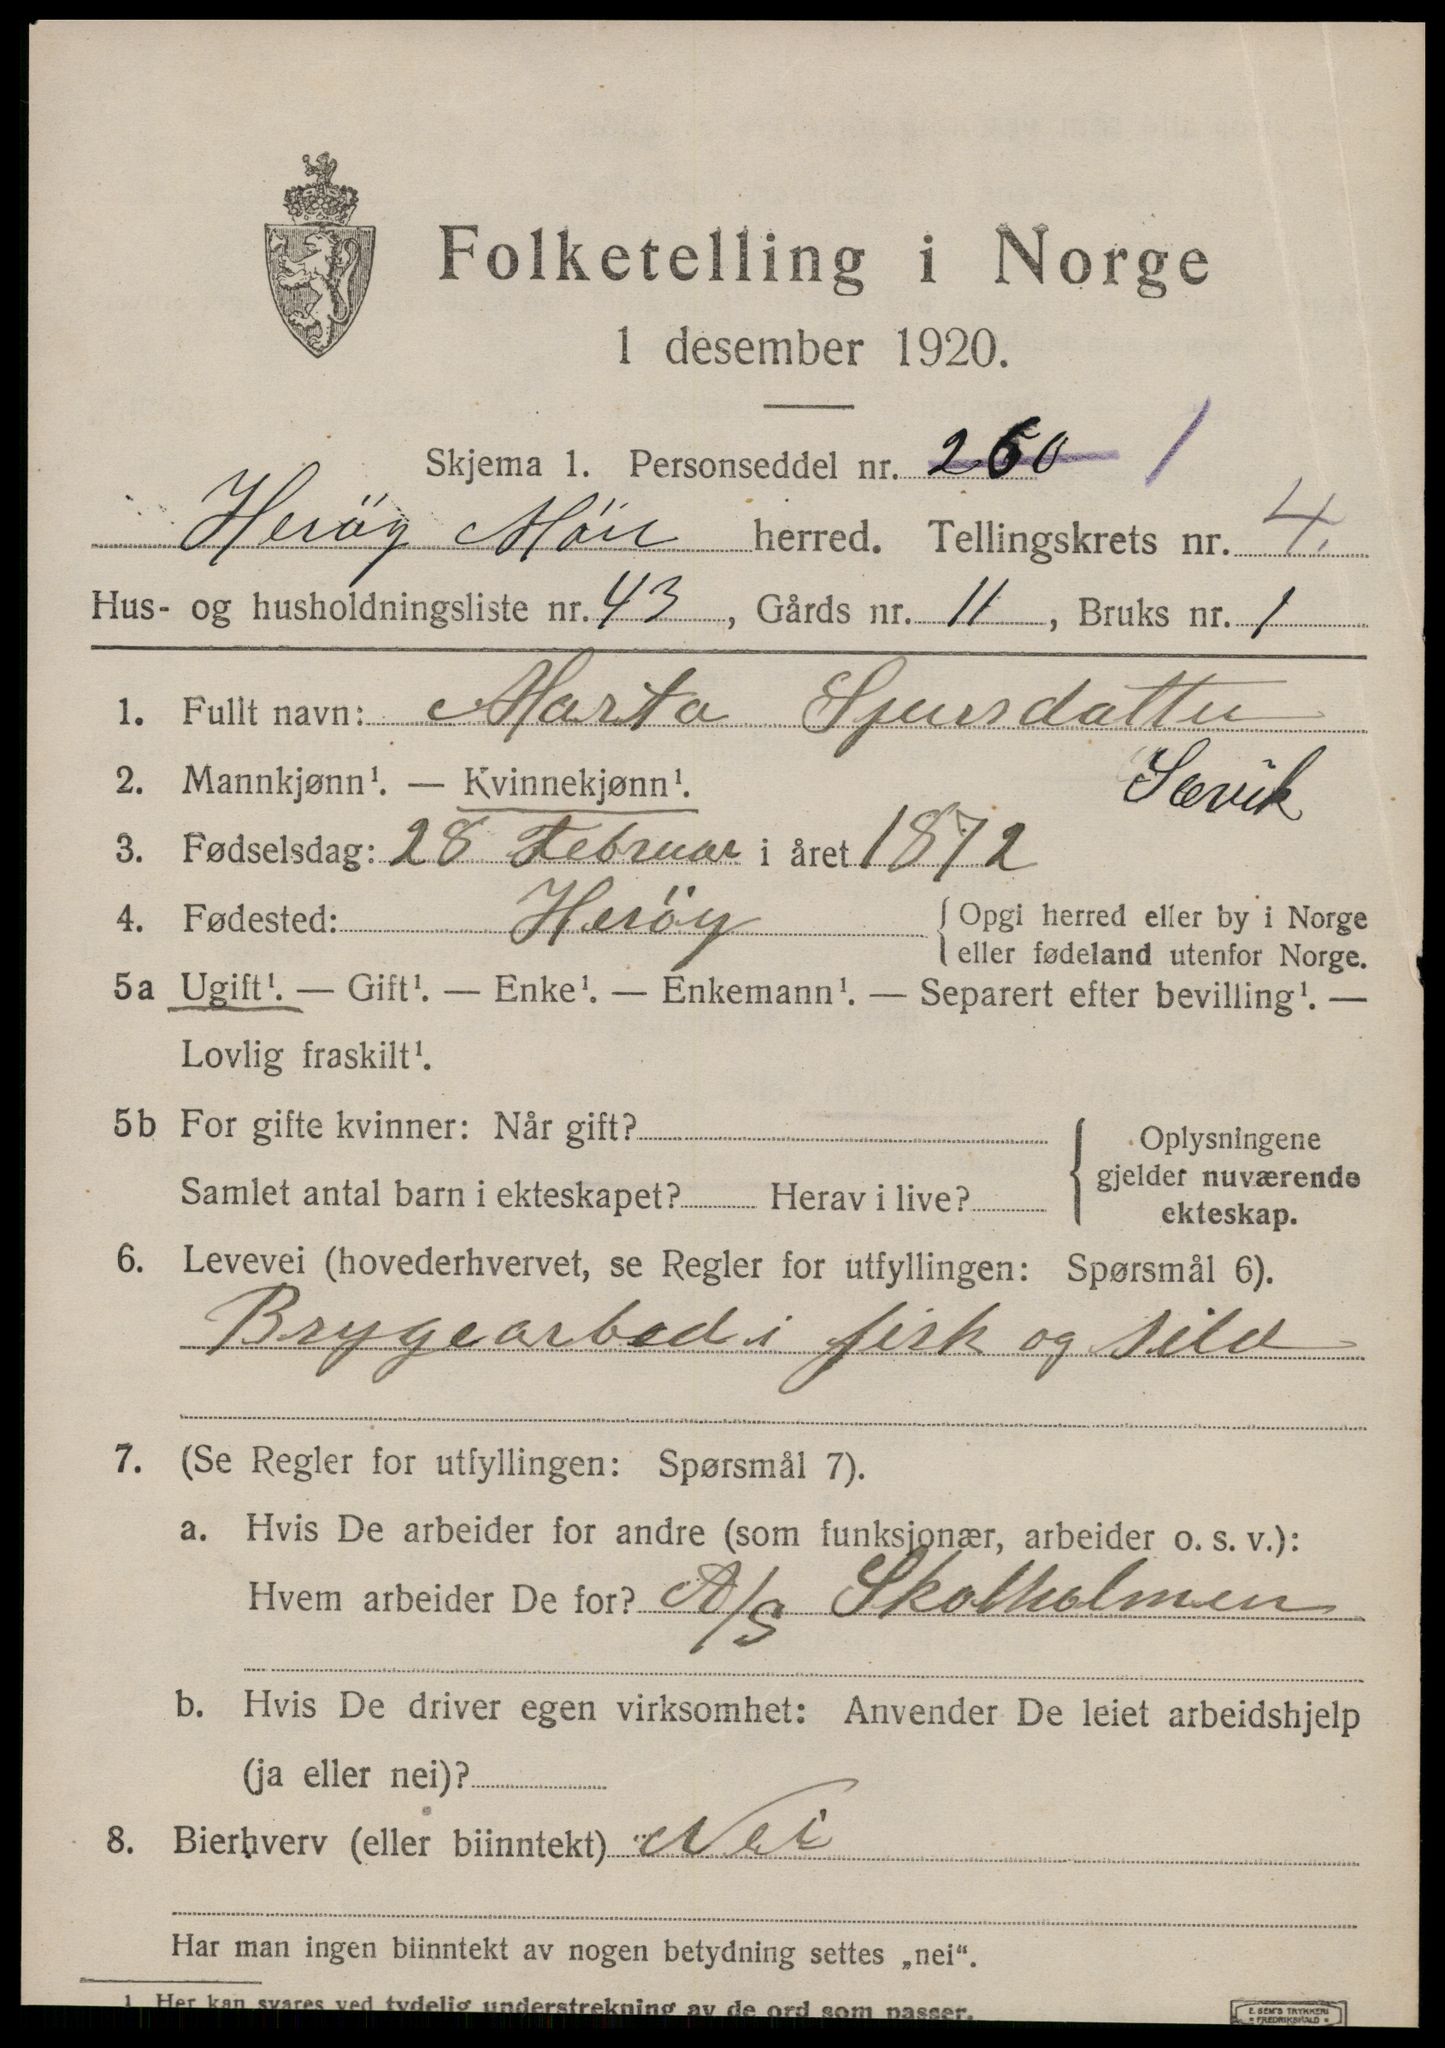 Folketelling i Norge
1 desember 1920.
Skjema 1. Personseddel nr. 260 1
Herøy Møre herred. Tellingskrets nr. 4.
Hus- og husholdningsliste nr. 43, Gårds nr. 11, Bruks nr. 1
1. Fullt navn: Marta Sjursdatter
Sævik
2. Mannkjønn¹. — Kvinnekjønn¹.
3. Fødselsdag: 28 Februar i året 1872
4. Fødested: Herøy { Opgi herred eller by i Norge
eller fødeland utenfor Norge.
5a Ugift¹. — Gift¹. — Enke¹. — Enkemann¹. — Separert efter bevilling¹. —
Lovlig fraskilt¹.
5b For gifte kvinner: Når gift?
Samlet antal barn i ekteskapet? Herav i live?
{ Oplysningene
gjelder nuværende
ekteskap.
6. Levevei (hovederhvervet, se Regler for utfyllingen: Spørsmål 6).
Brygearbed i fisk og sild
7. (Se Regler for utfyllingen: Spørsmål 7).
a. Hvis De arbeider for andre (som funksjonær, arbeider o. s. v.):
Hvem arbeider De for? A/S Skolholmen
b. Hvis De driver egen virksomhet: Anvender De leiet arbeidshjelp
(ja eller nei)?
8. Bierhverv (eller biinntekt) Nei
Har man ingen biinntekt av nogen betydning settes „nei“.
1 Her kan svares ved tydelig understrekning av de ord som passer.
E. SEM'S TRYKKERI
FREDRIKSHALD